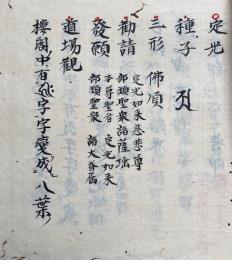 定光
種子
三形 佛頂
勸請 定光如来慈悲尊
部類聖衆諸薩埵
發願 本尊聖者 定光如来
部類聖衆 諸大眷屬
道場觀
樓閣中有 字字變成八葉